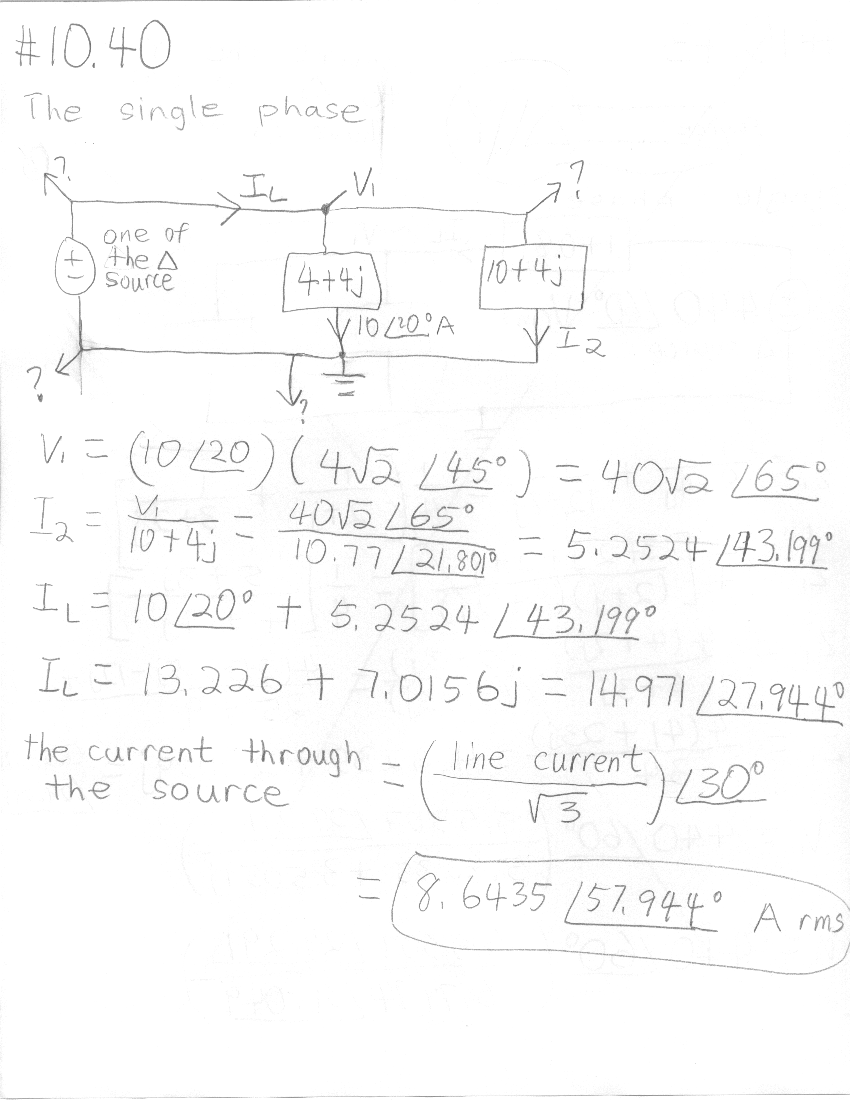 #10.40
The single phase
?
I_L
V₁
?
one of
the Δ
source
+
−
4+4j
10+4j
10∠20° A
I₂
?
?
V₁ = (10∠20)(4√2 ∠45°) = 40√2 ∠65°
I₂ = V₁/(10+4j) = 40√2 ∠65° / 10.77∠21.801° = 5.2524 ∠43.199°
I_L = 10∠20° + 5.2524 ∠43.199°
I_L = 13.226 + 7.0156j = 14.971 ∠27.944°
the current through
the source
= (line current/√3) ∠30°
= 8.6435 ∠57.944° A rms